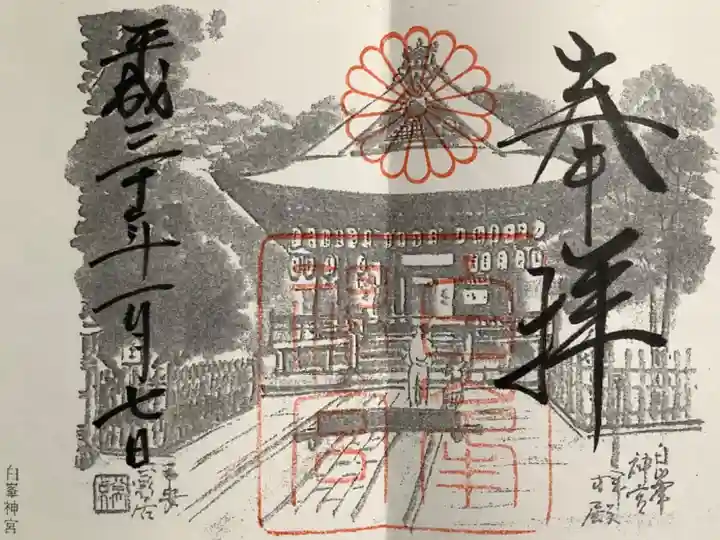 奉拝
白峯
神宮
拝殿
平成三十年一月七日
白峯神宮